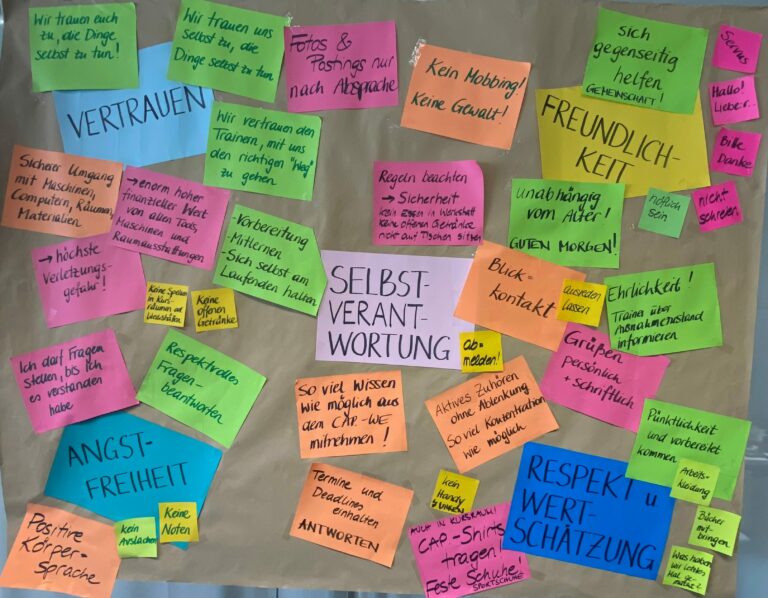 Wir trauen euch
zu, die Dinge
selbst zu tun!
Wir trauen uns
selbst zu, die
Dinge selbst zu tun
Fotos &
Postings nur
nach Absprache
Kein Mobbing!
Keine Gewalt!
sich
gegenseitig
helfen
GEMEINSCHAFT!
Servus
Hallo!
Liebe:r.
Bitte
Danke
VERTRAUEN
Wir vertrauen den
Trainern, mit uns
den richtigen "Weg"
zu gehen
FREUNDLICH-
KEIT
Sicherer Umgang
mit Maschinen,
Computern, Räumen,
Materialien
→ enorm hoher
finanzieller Wert
von allen Tools,
Maschinen und
Raumausstattungen
Regeln beachten
→ Sicherheit
kein Essen in Werkstatt
keine offenen Getränke
nicht auf Tischen sitzen
unabhängig
vom Alter!
GUTEN MORGEN!
höflich
sein
nicht
schreien
→ höchste
Verletzungs-
gefahr!
Keine Speisen
in Kurs-
räumen und
Werkstätten
Keine
offenen
Getränke
- Vorbereitung
- Mitlernen
- Sich selbst am
Laufenden halten
SELBST-
VERANT-
WORTUNG
Ab-
melden!
Blick-
kontakt
ausreden
lassen
Ehrlichkeit!
Trainer über
Ausnahmezustand
informieren
Grüßen
persönlich
+ schriftlich
Ich darf Fragen
stellen, bis ich
es verstanden
habe
Respektvolles
Fragen-
beantworten
So viel Wissen
wie möglich aus
dem CAP.-WE
mitnehmen!
Aktives Zuhören
ohne Ablenkung
So viel Konzentration
wie möglich
Pünktlichkeit
und vorbereitet
kommen
Arbeits-
kleidung
ANGST-
FREIHEIT
Positive
Körper-
Sprache
kein
Auslachen
Keine
Noten
Termine und
Deadlines
einhalten
ANTWORTEN
kein
Handy
AUCH IN KURSRAUM!
CAP.-Shirts
tragen!
Feste Schuhe!
SPORTSCHUHE
RESPEKT u.
WERT-
SCHÄTZUNG
Bücher
mit-
bringen
Was haben
wir letztes
Mal ge-
macht?